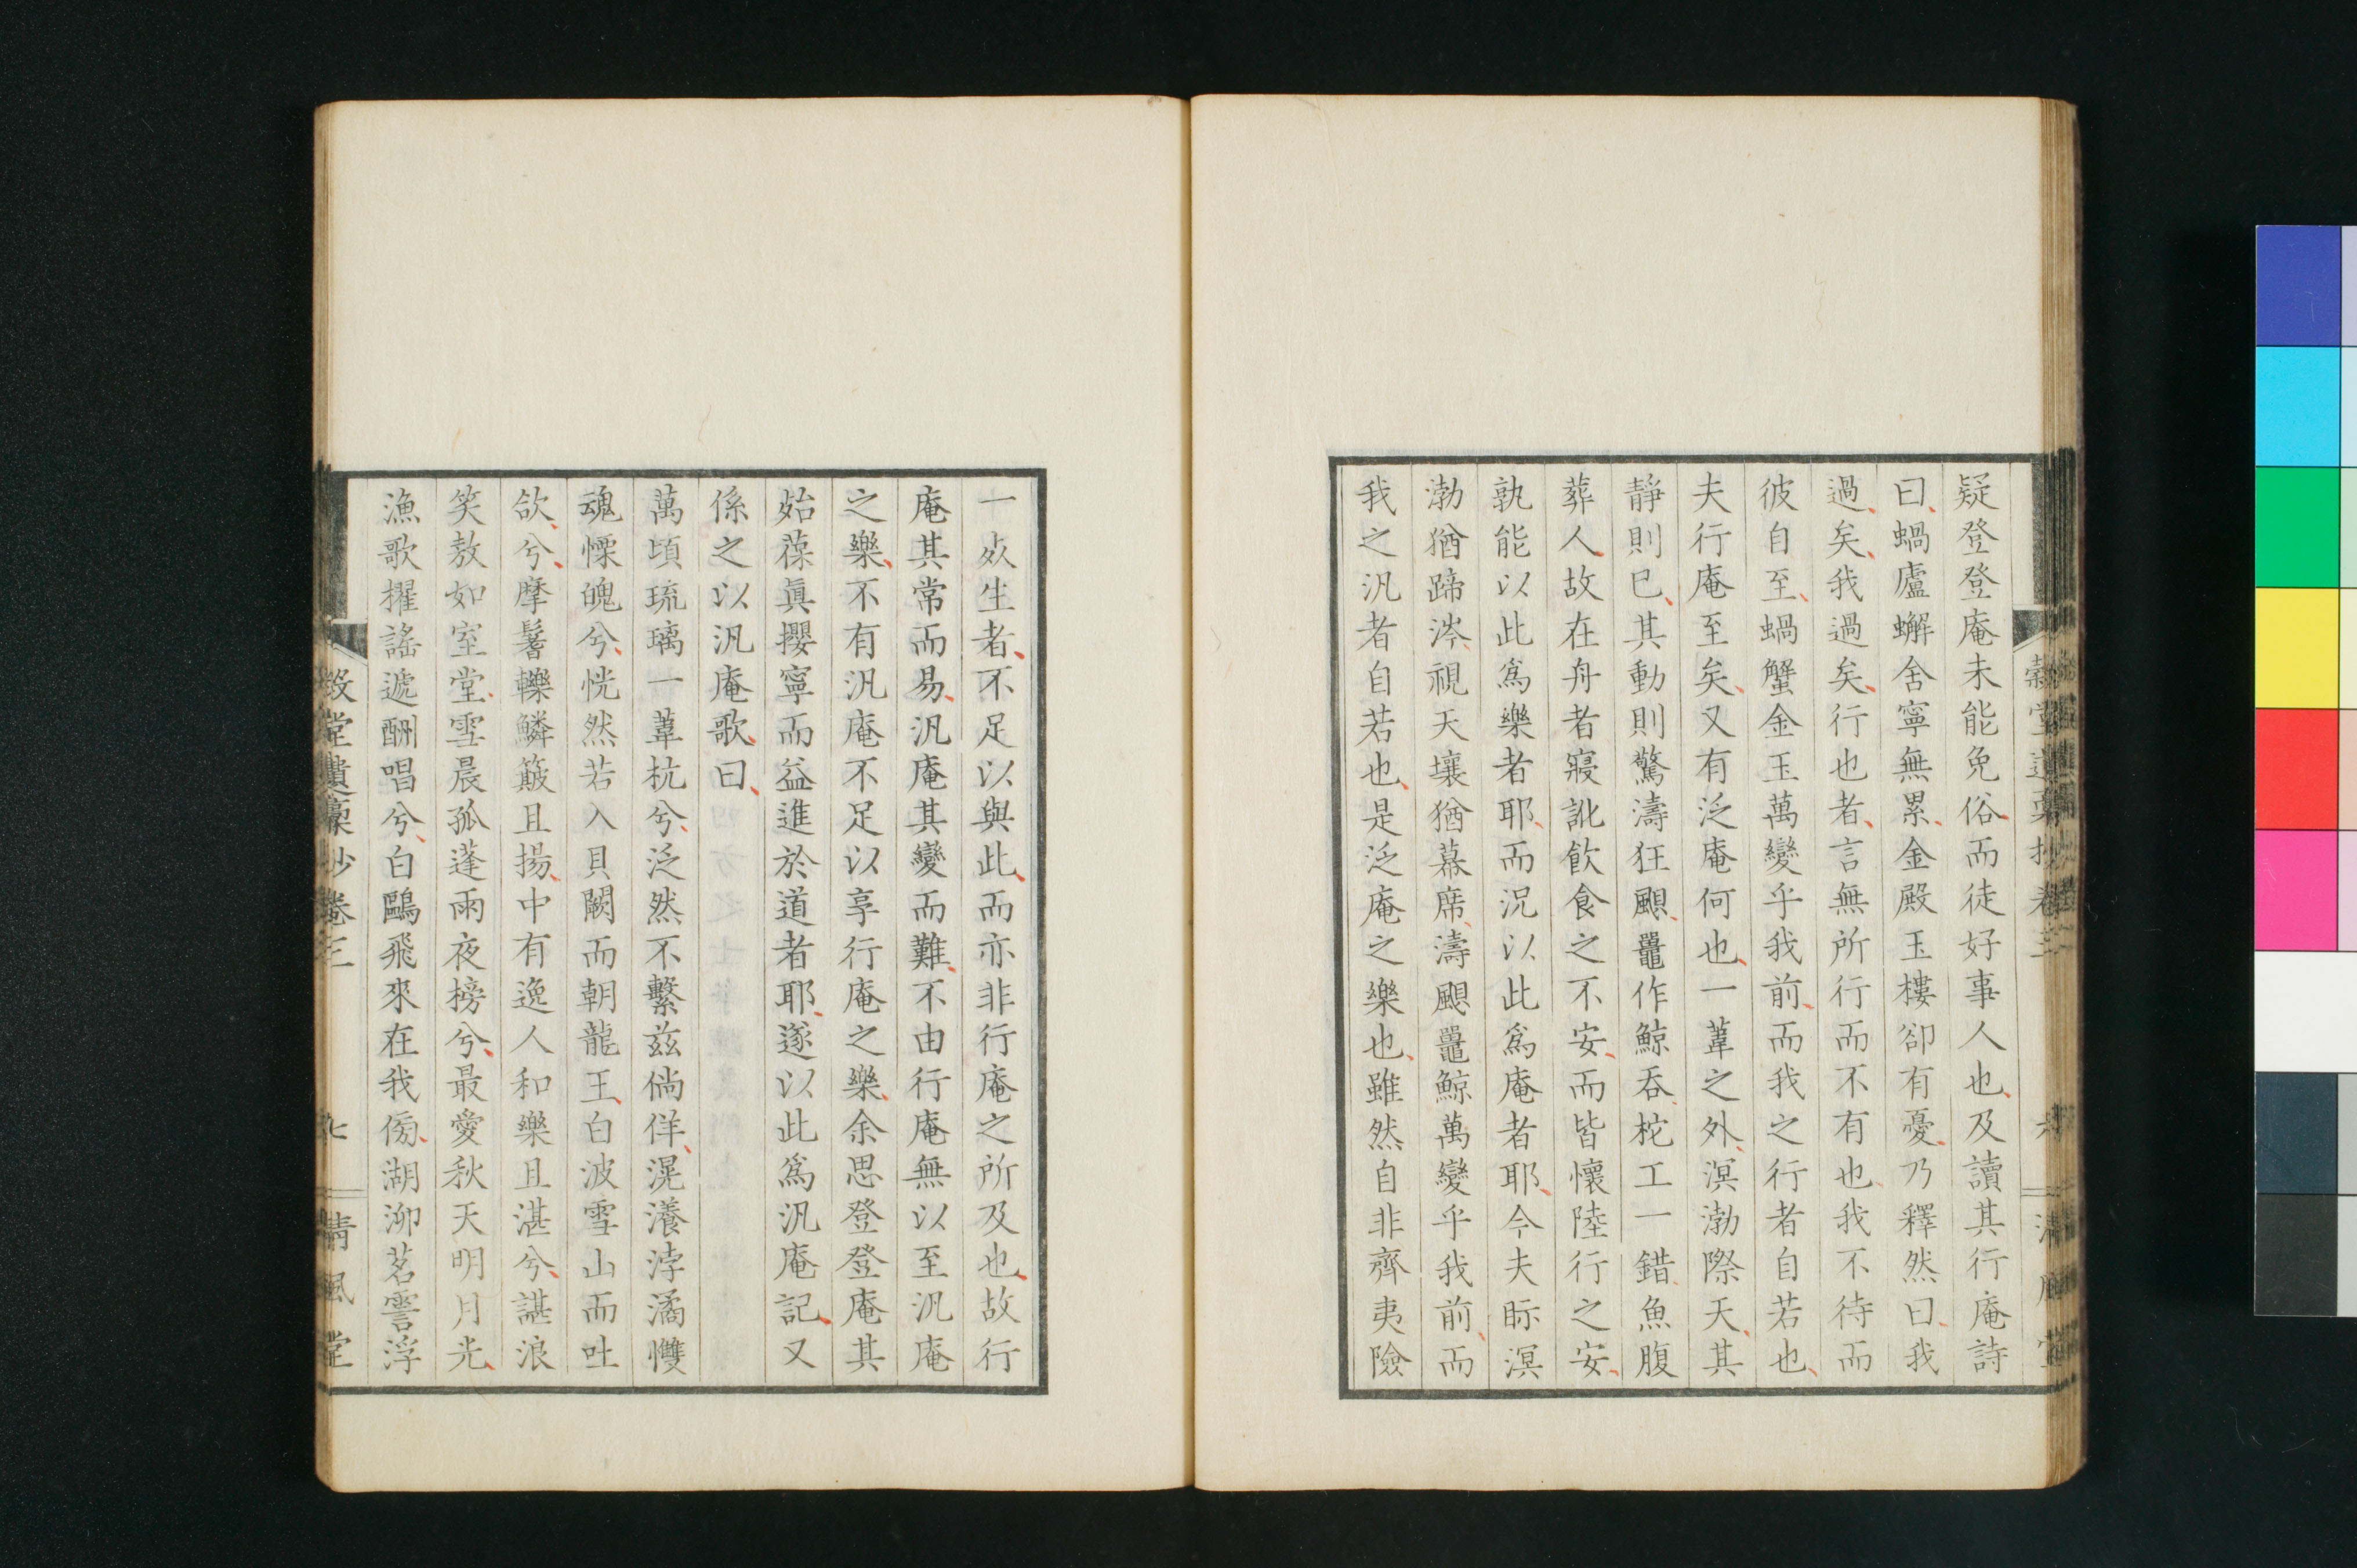 疑登登庵未能免俗而徒好事人也及讀其行庵詩
曰蝸廬蠏舍寧無累金殿玉樓卻有憂乃釋然曰我
過矣我過矣行也者言無所行而不有也我不待而
彼自至蝸蟹金玉萬變乎我前而我之行者自若也
夫行庵至矣又有泛庵何也一葦之外溟渤際天其
靜則已其動則驚濤狂颶鼉作鯨吞柁工一錯魚腹
葬人故在舟者寢訛飲食之不安而皆懷陸行之安
孰能以此爲樂者耶而況以此爲庵者耶今夫眎溟
渤猶蹄涔視天壤猶幕席濤颶鼉鯨萬變乎我前而
我之汎者自若也是泛庵之樂也雖然自非齊夷險
一死生者不足以與此而亦非行庵之所及也故行
庵其常而易汎庵其變而難不由行庵無以至汎庵
之樂不有汎庵不足以享行庵之樂余思登登庵其
始葆眞攖寧而益進於道者耶遂以此爲汎庵記又
係之以汎庵歌曰
萬頃琉璃一葦杭兮泛然不繫兹倘佯滉瀁浡潏㦼
魂慄魄兮恍然若入貝闕而朝龍王白波雪山而吐
欱兮摩鬐轢鱗簸且揚中有逸人和樂且湛兮諶浪
笑敖如室堂雪晨孤蓬雨夜榜兮最愛秋天明月光
漁歌擢謠遞酬唱兮白鷗飛來在我傍湖泖茗霅浮
穀堂遺稾抄卷三
七
清風堂